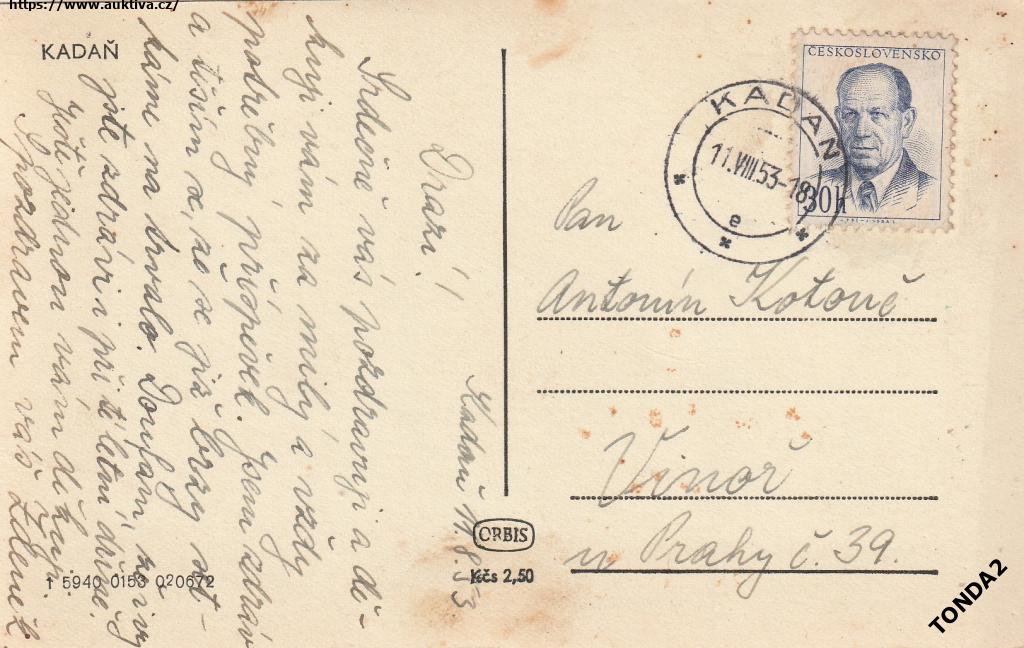 https://www.auktiva.cz/
KADAŇ
Kadaň 11.8.53.
Drazí!
Srdečně vás pozdravuji a dě-
kuji vám za milý a vždy
potřebný příspěvek. Jsem zdráv
a těším se, že se již brzy set-
káme na trvalo. Doufám, že i vy
jste zdrávi i při té letní dřině.
Ještě jednou vám děkuji.
S pozdravem váš Zdeněk
ČESKOSLOVENSKO
30h
KADAŇ
11.VIII.53-18
e
Pan
Antonín Kotouč
Vinoř
u Prahy č. 39.
ORBIS
Kčs 2,50
1 5940 0153 020672
TONDA2